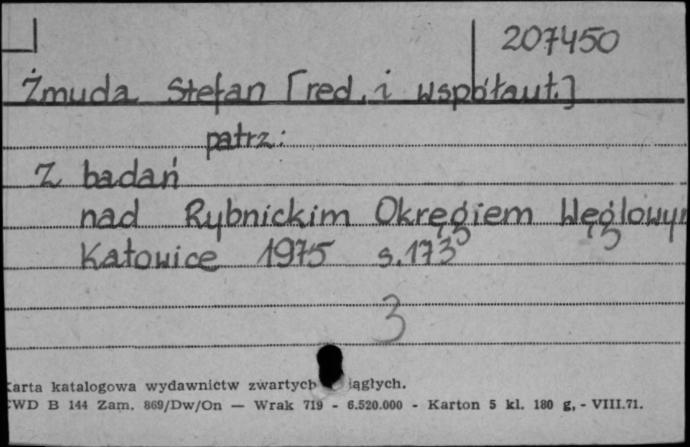 207450
Żmuda Stefan [red. i współaut.]
patrz:
Z badań
nad Rybnickim Okręgiem Węglowy
Katowice 1975 s. 173
3
Karta katalogowa wydawnictw zwartych ciągłych.
CWD B 144 Zam. 869/Dw/On — Wrak 719 - 6.520.000 - Karton 5 kl. 180 g, - VIII.71.